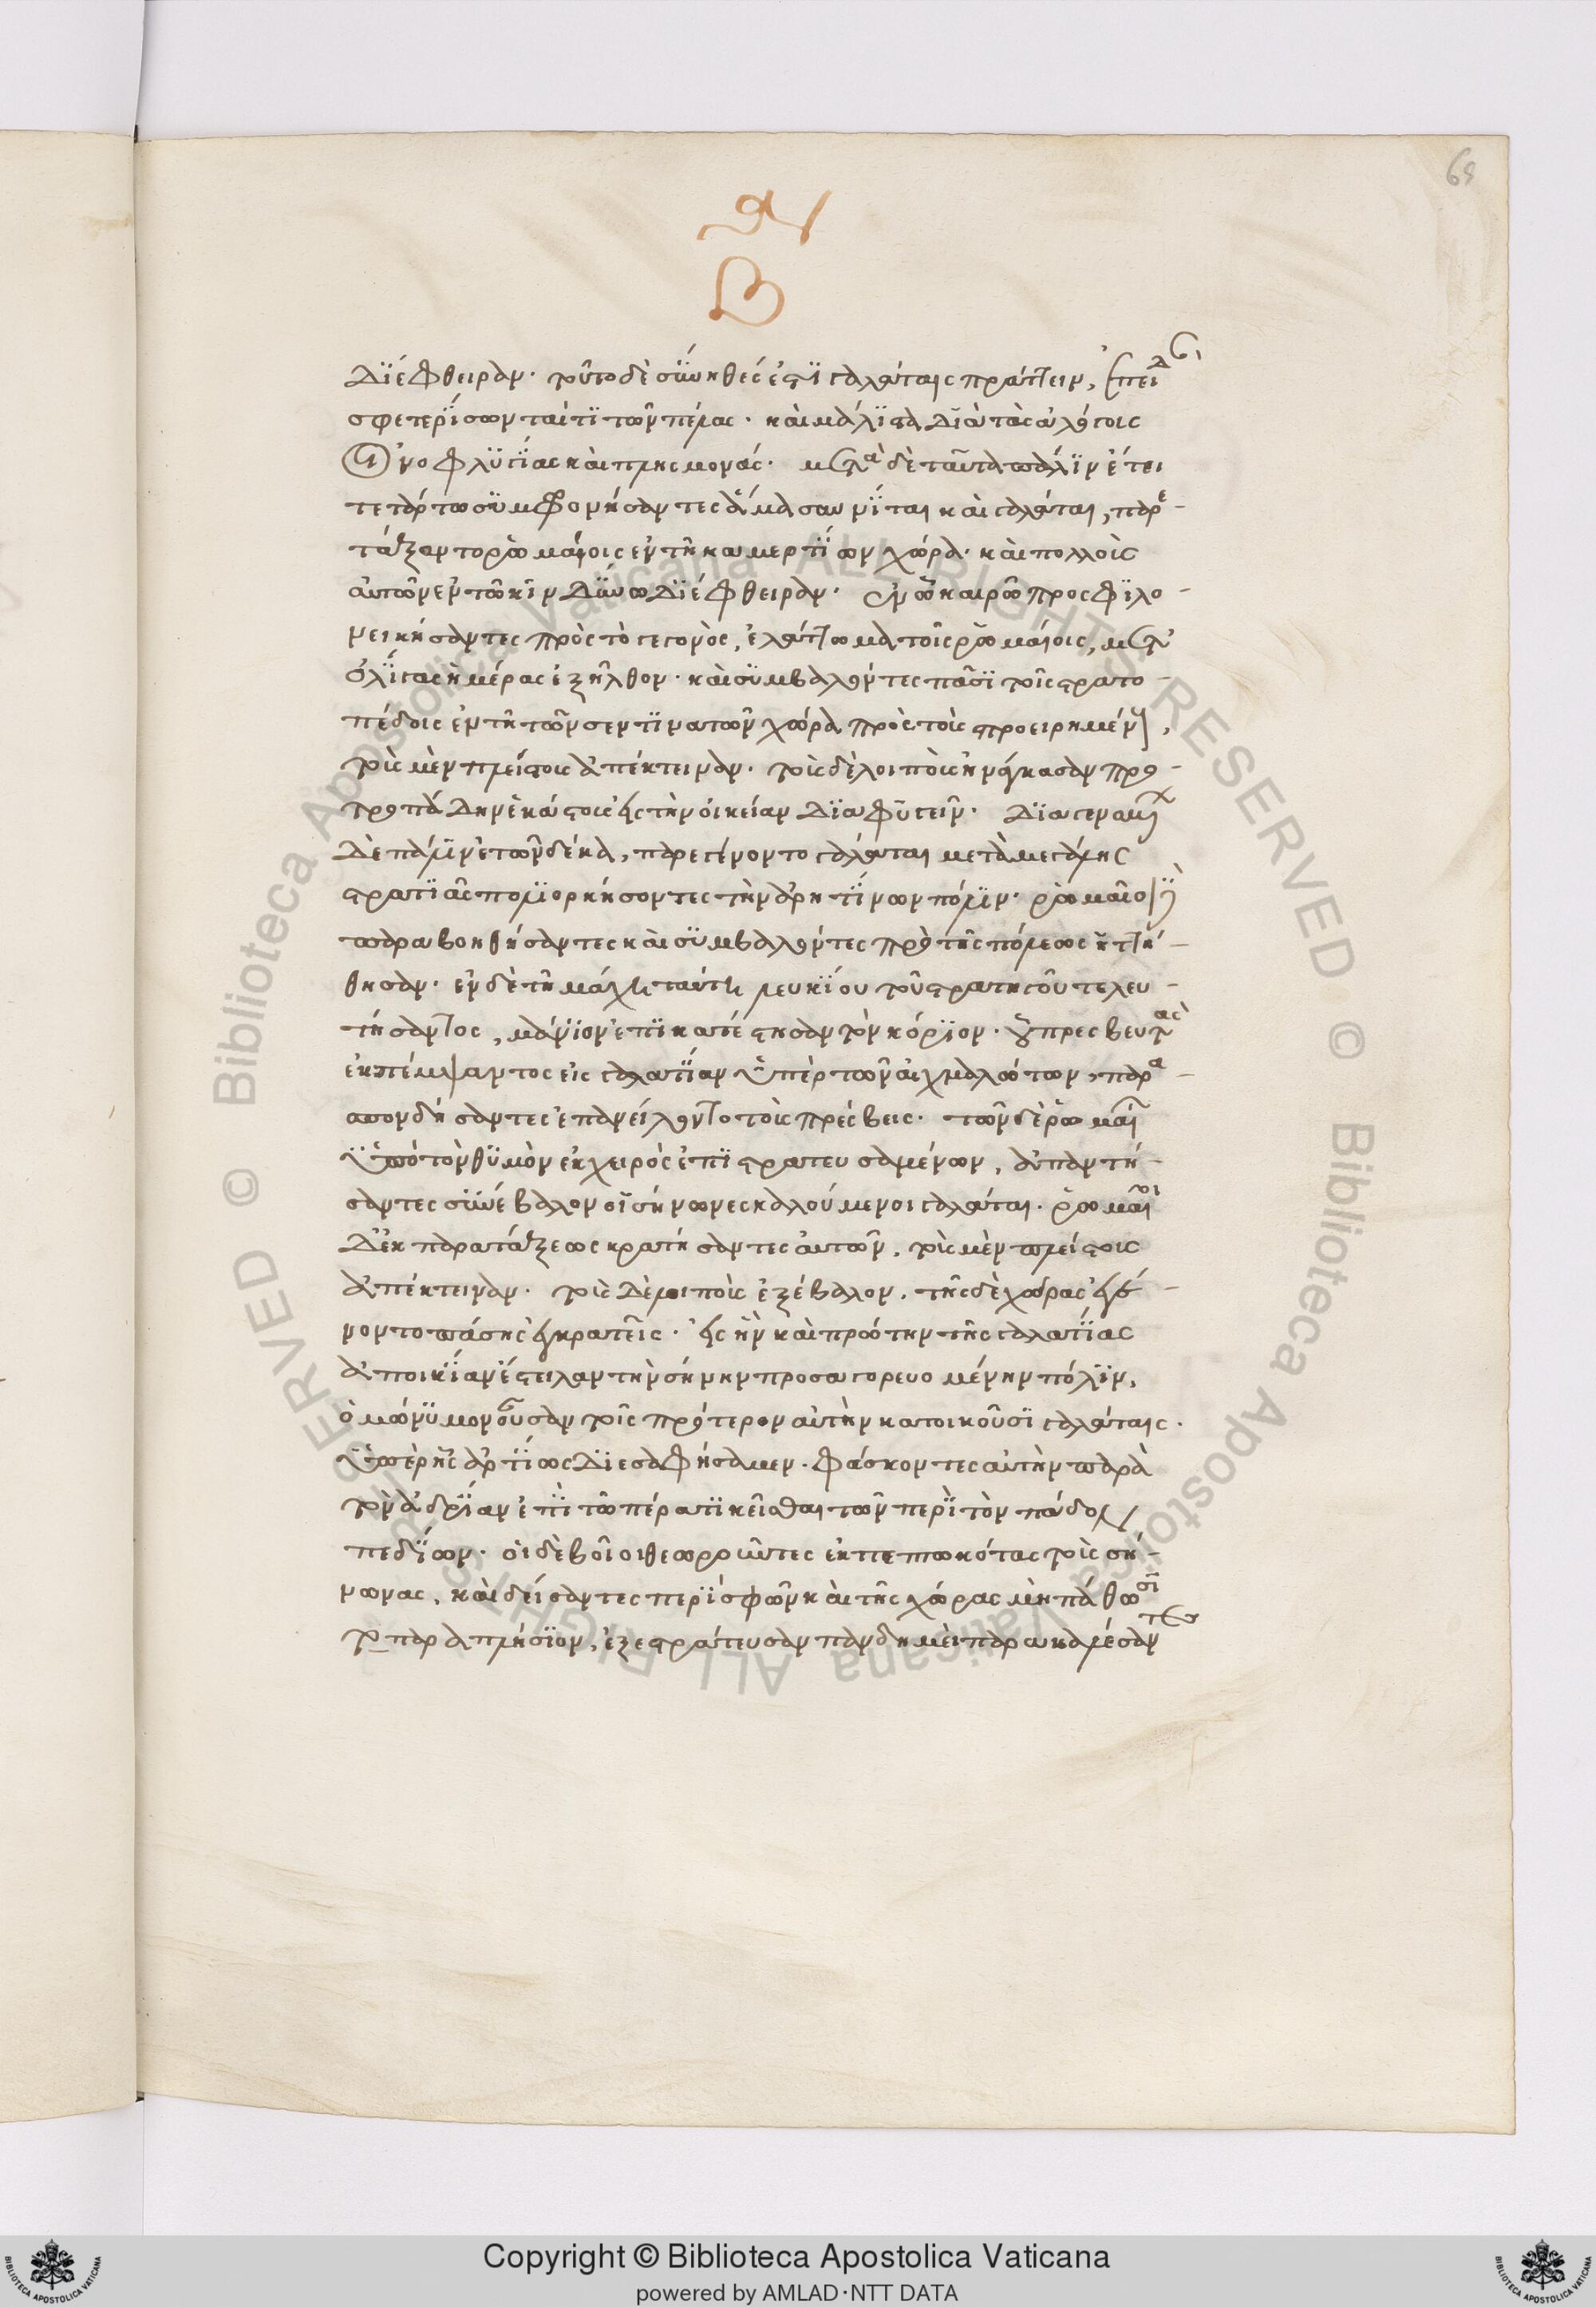 Β
διέφθειραν· τοῦτο δὲ σύνηθές ἐστι γαλάταις πράττειν, ἐπειδὰν
σφετερίσωνταί τι τῶν πέλας· καὶ μάλιστα διὰ τὰς ἀλόγους
οἰνοφλυγίας καὶ πλησμονάς· μετὰ δὲ ταῦτα πάλιν ἔτει
τετάρτω συμφρονήσαντες ἅμα σαυνίται καὶ γαλάται, παρε-
τάξαντο ῥωμαίοις ἐν τῆ καμερτίων χώρα· καὶ πολλοὺς
αὐτῶν ἐν τῶ κινδύνω διέφθειραν· ἐν ὧ καιρῶ προσφιλο-
νεικήσαντες πρὸς τὸ γεγονὸς, ἐλάττωμα τοῖς ῥωμαίοις, μετ'
ὀλίγας ἡμέρας ἐξῆλθον· καὶ συμβαλόντες πᾶσι τοῖς στρατο-
πέδοις ἐν τῆ τῶν σεντινατῶν χώρα πρὸς τοὺς προειρημένους,
τοὺς μὲν πλείστους ἀπέκτειναν· τοὺς δὲ λοιποὺς ἠνάγκασαν προ-
τροπάδην ἑκάστους εἰς τὴν οἰκείαν διαφυγεῖν· διαγενομένων
δὲ πάλιν ἐτῶν δέκα, παρεγένοντο γαλάται μετὰ μεγάλης
στρατιᾶς πολιορκήσοντες τὴν ἀρητίνων πόλιν· ῥωμαῖοι δὲ
παραβοηθήσαντες καὶ συμβαλόντες πρὸ τῆς πόλεως ἡττή-
θησαν· ἐν δὲ τῆ μάχη ταύτη λευκίου τοῦ στρατηγοῦ τελευ-
τήσαντος, μάνιον ἐπικατέστησαν τὸν κόριον· οὗ πρεσβευτὰς
ἐκπέμψαντος εἰς γαλατίαν ὑπὲρ τῶν αἰχμαλώτων, παρα-
σπονδήσαντες ἐπανείλοντο τοὺς πρέσβεις· τῶν δὲ ῥωμαίων
ὑπὸ τὸν θυμὸν ἐκ χειρὸς ἐπιστρατευσαμένων, ἀπαντή-
σαντες συνέβαλον οἱ σήνωνες καλούμενοι γαλάται· ῥωμαῖοι
δ' ἐκ παρατάξεως κρατήσαντες αὐτῶν, τοὺς μὲν πλείστους
ἀπέκτειναν· τοὺς δὲ λοιποὺς ἐξέβαλον, τῆς δὲ χώρας ἐγέ-
νοντο πάσης ἐγκρατεῖς· εἰς ἣν καὶ πρώτην τῆς γαλατίας
ἀποικίαν ἔστειλαν τὴν σήνην προσαγορευομένην πόλιν,
ὁμώνυμον οὖσαν τοῖς πρότερον αὐτὴν κατοικοῦσι γαλάταις·
ὑπὲρ ἧς ἀρτίως διεσαφήσαμεν· φάσκοντες αὐτὴν παρὰ
τὸν ἀδρίαν ἐπὶ τῶ πέρατι κεῖσθαι τῶν περὶ τὸν πάδον
πεδίων· οἱ δὲ βοῖοι θεωροῦντες ἐκπεπτωκότας τοὺς σή-
νωνας, καὶ δείσαντες περὶ σφῶν καὶ τῆς χώρας μὴ πάθωσι
τὸ παραπλήσιον, ἐξεστράτευσαν πανδημεὶ παρακαλέσαντες